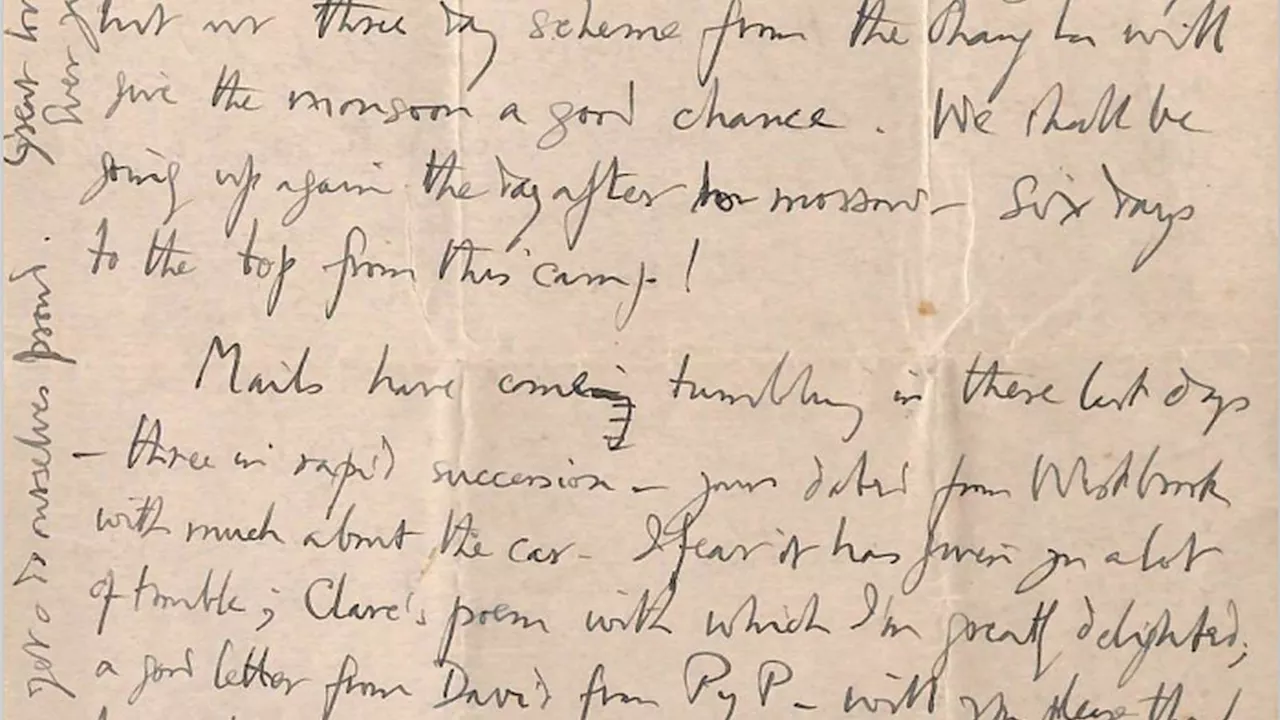 but our three day scheme from the Chang La will
give the monsoon a good chance. We shall be
going up again the day after to morrow – Six days
to the top from this camp!
Mails have coming tumbling in these last days
– three in rapid succession – yours dated from Westbrook
with much about the car – I fear it has given you a lot
of trouble; Clare's poem with which I'm greatly delighted;
a good letter from David from PyP – will you please
great
ever
yet & do ourselves proud.